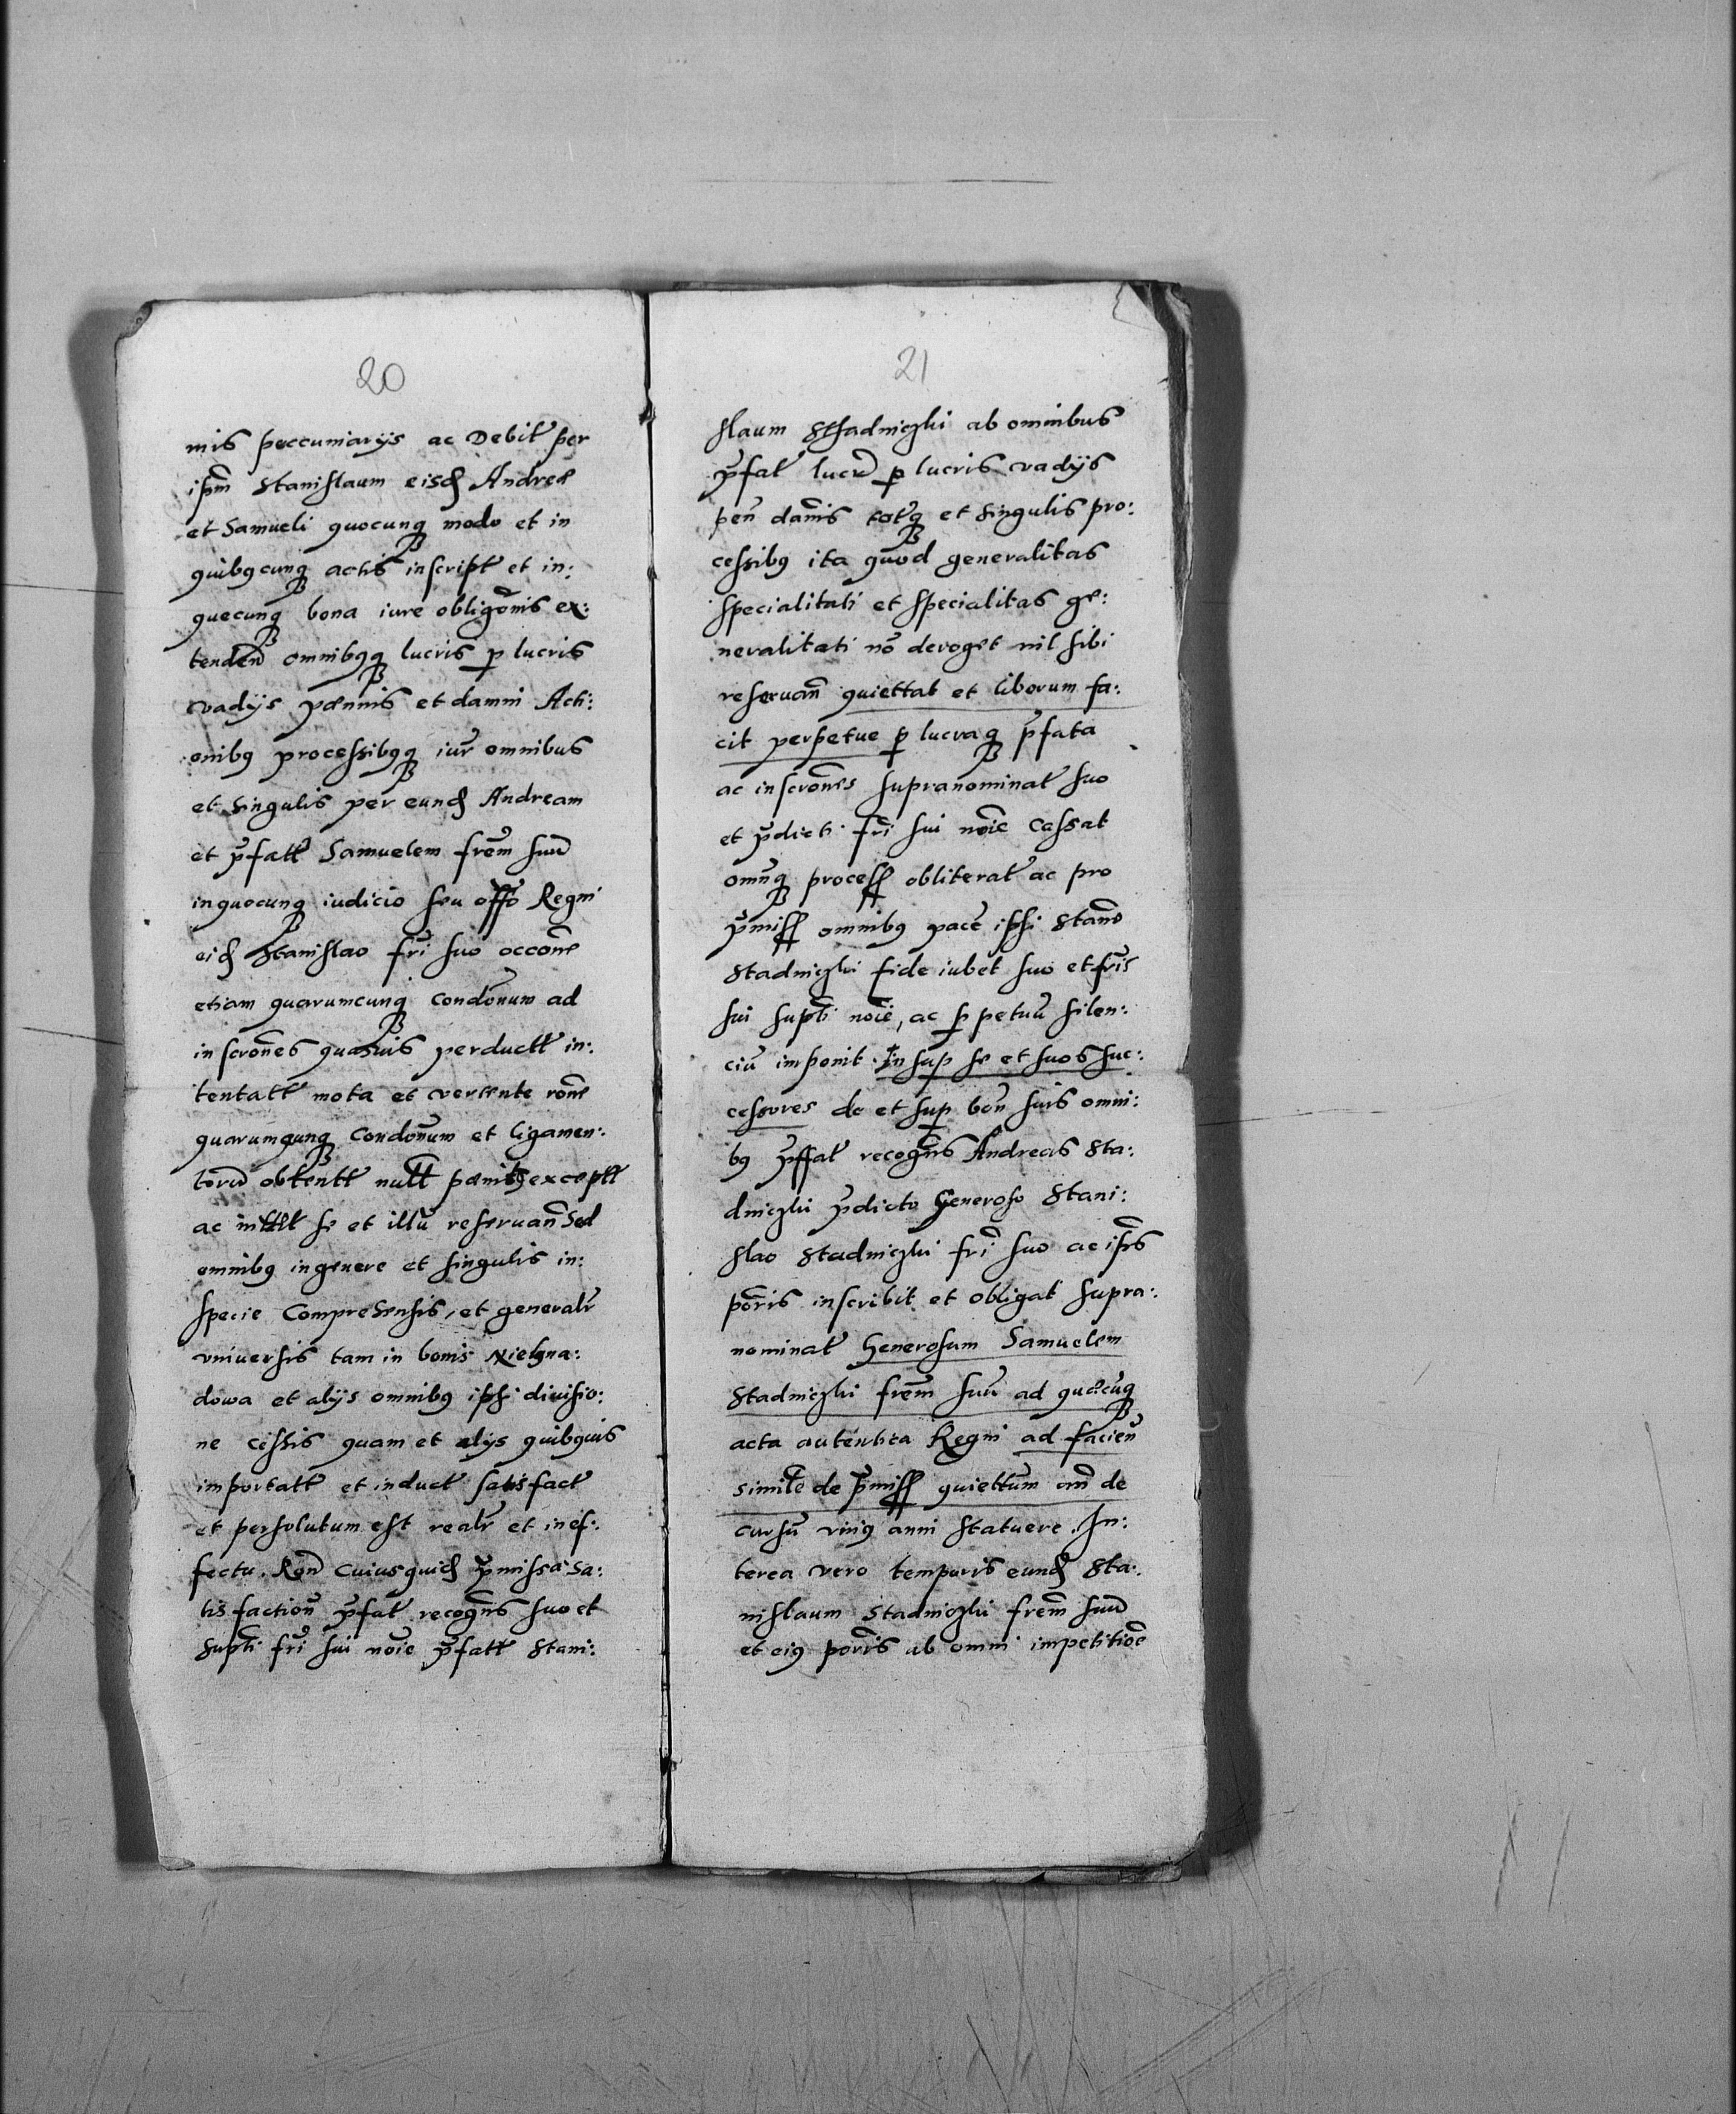 20
mis peccuniarijs ac Debit per
ipm̃ Stanislaum eisđ Andreę
et Samueli quocunq̃ modo et in
quibꝯcunq̃ actis inscript et in:
quecunq̃ bona iure obligõnis ex:
tendeñ omnibꝯq̃ lucris ꝑ lucris
vadijs pænnis et damni Acti:
onibꝯ processibꝯq̃ iur̃ omnibus
et singulis per eunđ Andream
et p̃fatt Samuelem frẽm suũ
inquocunq̃ iudicio seu offo Regni
eiđ Stanislao fr̃i suo occõne
etiam quarumcunq̃ condõnum ad
inscrõnes quasvis perductt in:
tentatt mota et vertente rõne
quarumqunq̃ condõnum et ligamen:
torũ obtentt nullt pænitꝯ exceptt
ac se et illũ reservañ Sed
omnibꝯ ingenere et singulis in:
specie Comprehensis, et generalr̃
vniversis tam in bonis Niehna:
dowa et alijs omnibꝯ ipsi divisio:
ne cessis quam et alijs quibꝯvis
importatt et induct satisfact
et persolutum est realr̃ et inef:
fectu. Roñe Cuiusquiđ p̃missa Sa:
tisfactioñ p̃fat recogñs suo et
supti fr̃i sui nõie p̃fatt Stani:
21
slaum Sthadniczki ab omnibus
p̃fat lucr̃ ꝑ lucris vadijs
peñ damñis totq̃ et singulis pro:
cessibꝯ ita quod generalitas
specialitati et specialitas ge:
neralitati nõ deroget nil sibi
reservañ quiettat et liborum fa:
cit perpetue ꝑ lucraq̃ p̃fata
ac inscrõnes supranominat suo
et p̃dicti fr̃i sui nõie Cassat
omnq̃ process obliterat ac pro
p̃miss omnibꝯ pacẽ ipsi Stano
Stadniczki fide iubet suo et fr̃is
sui supti nõie, ac ꝑpetuũ silen:
ciũ imponit. Insup se et suos suc:
cessores de et sup boñ suis omni:
bꝯ p̃ffat recogñs Andreas Sta:
dniczki p̃dicto Generoso Stani:
slao Stadniczki fr̃i suo ac ipsis
põris inscribit et obligat supra:
nominat Generosum Samuelem
Stadniczki frẽm suũ ad quæcũq̃
acta autentica Regni ad facieñ
similẽ de p̃miss quiettum añ de
cursũ vniꝯ anni statuere. In:
terea vero temporis eunđ Sta:
nislaum Stadniczki frẽm suũ
et eiꝯ põris ab omni impetitiõe